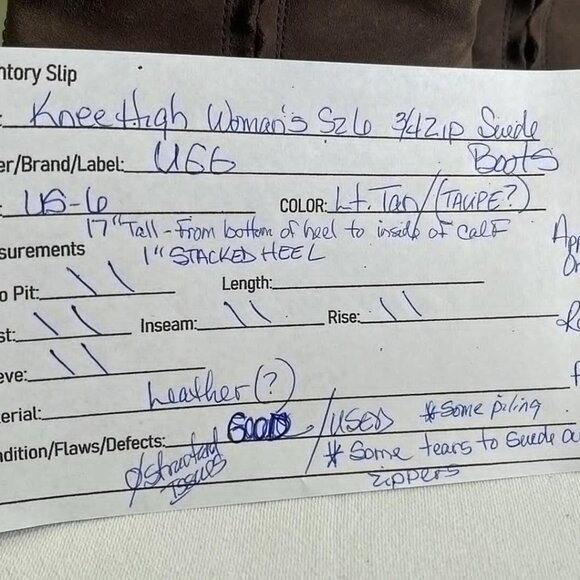 ntory Slip
: Knee High Woman's Sz 6 3/4 Zip Suede Boots
er/Brand/Label: UGG
: US-6 COLOR: Lt. Tan/(TAUPE?)
17" Tall - From bottom of heel to inside of calf
surements 1" STACKED HEEL
o Pit: \ \ Length:
st: \ \ Inseam: \ \ Rise: \ \
eve: \ \
erial: Leather(?)
ndition/Flaws/Defects: GOOD /USED * Some piling
* Some tears to Suede
zippers